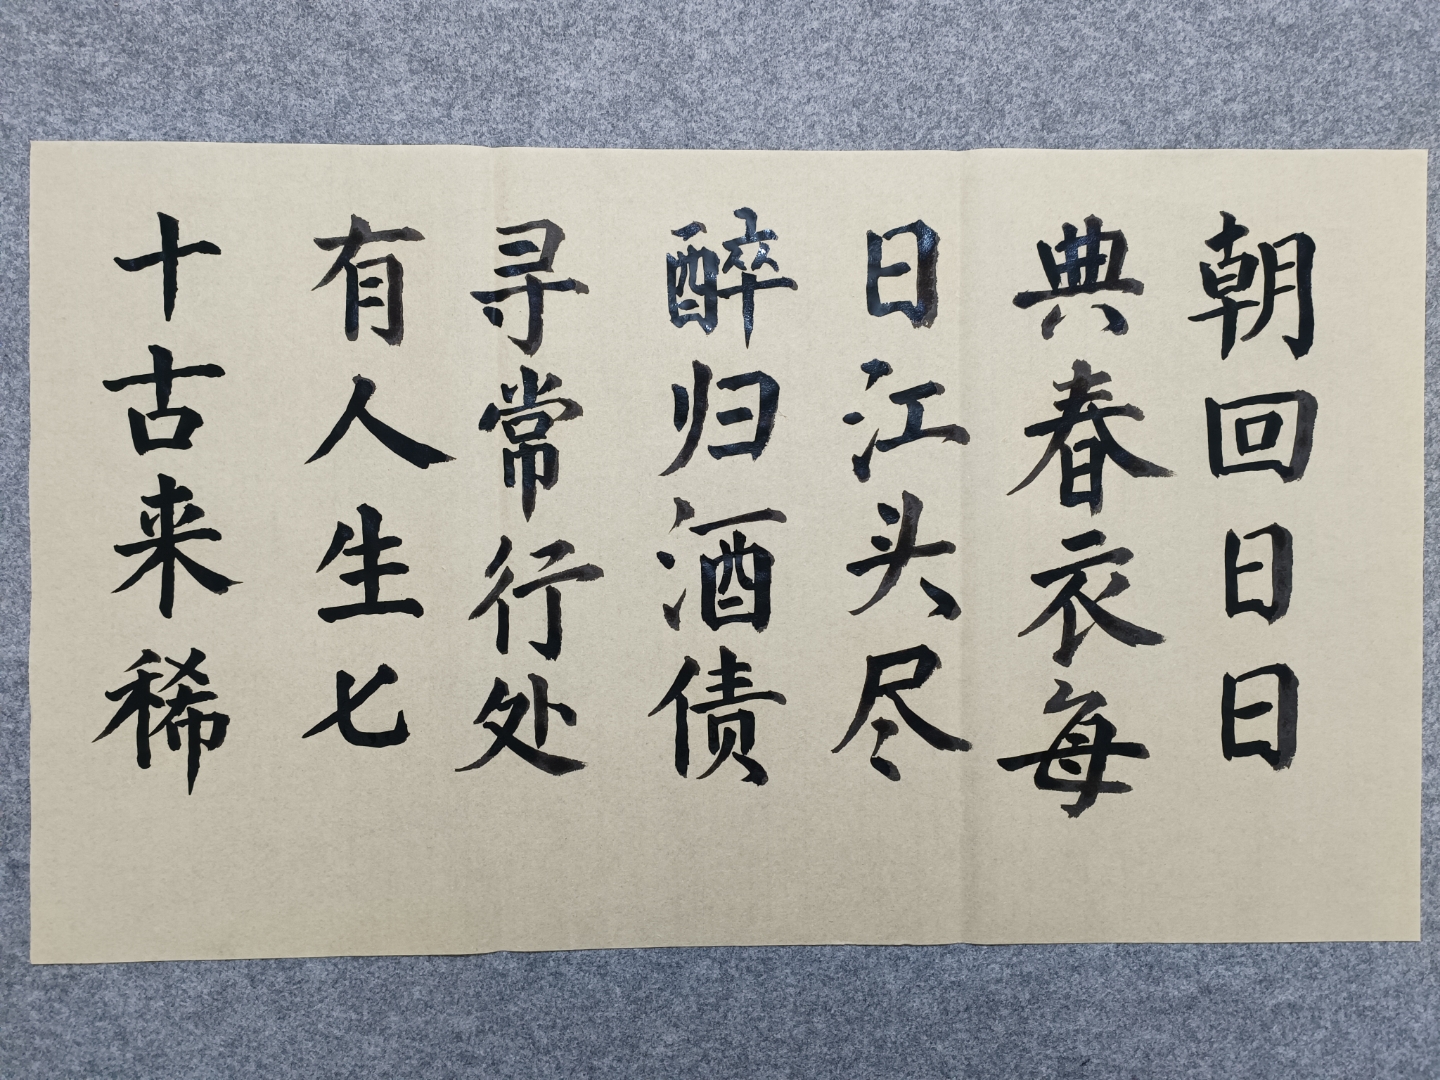 朝回日日
典春衣每
日江头尽
醉归酒债
寻常行处
有人生七
十古来稀